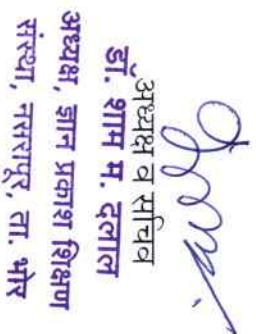 अध्यक्ष व सचिव
डॉ. शाम म. दलाल
अध्यक्ष, ज्ञान प्रकाश शिक्षण
संस्था, नसरापूर, ता. भोर